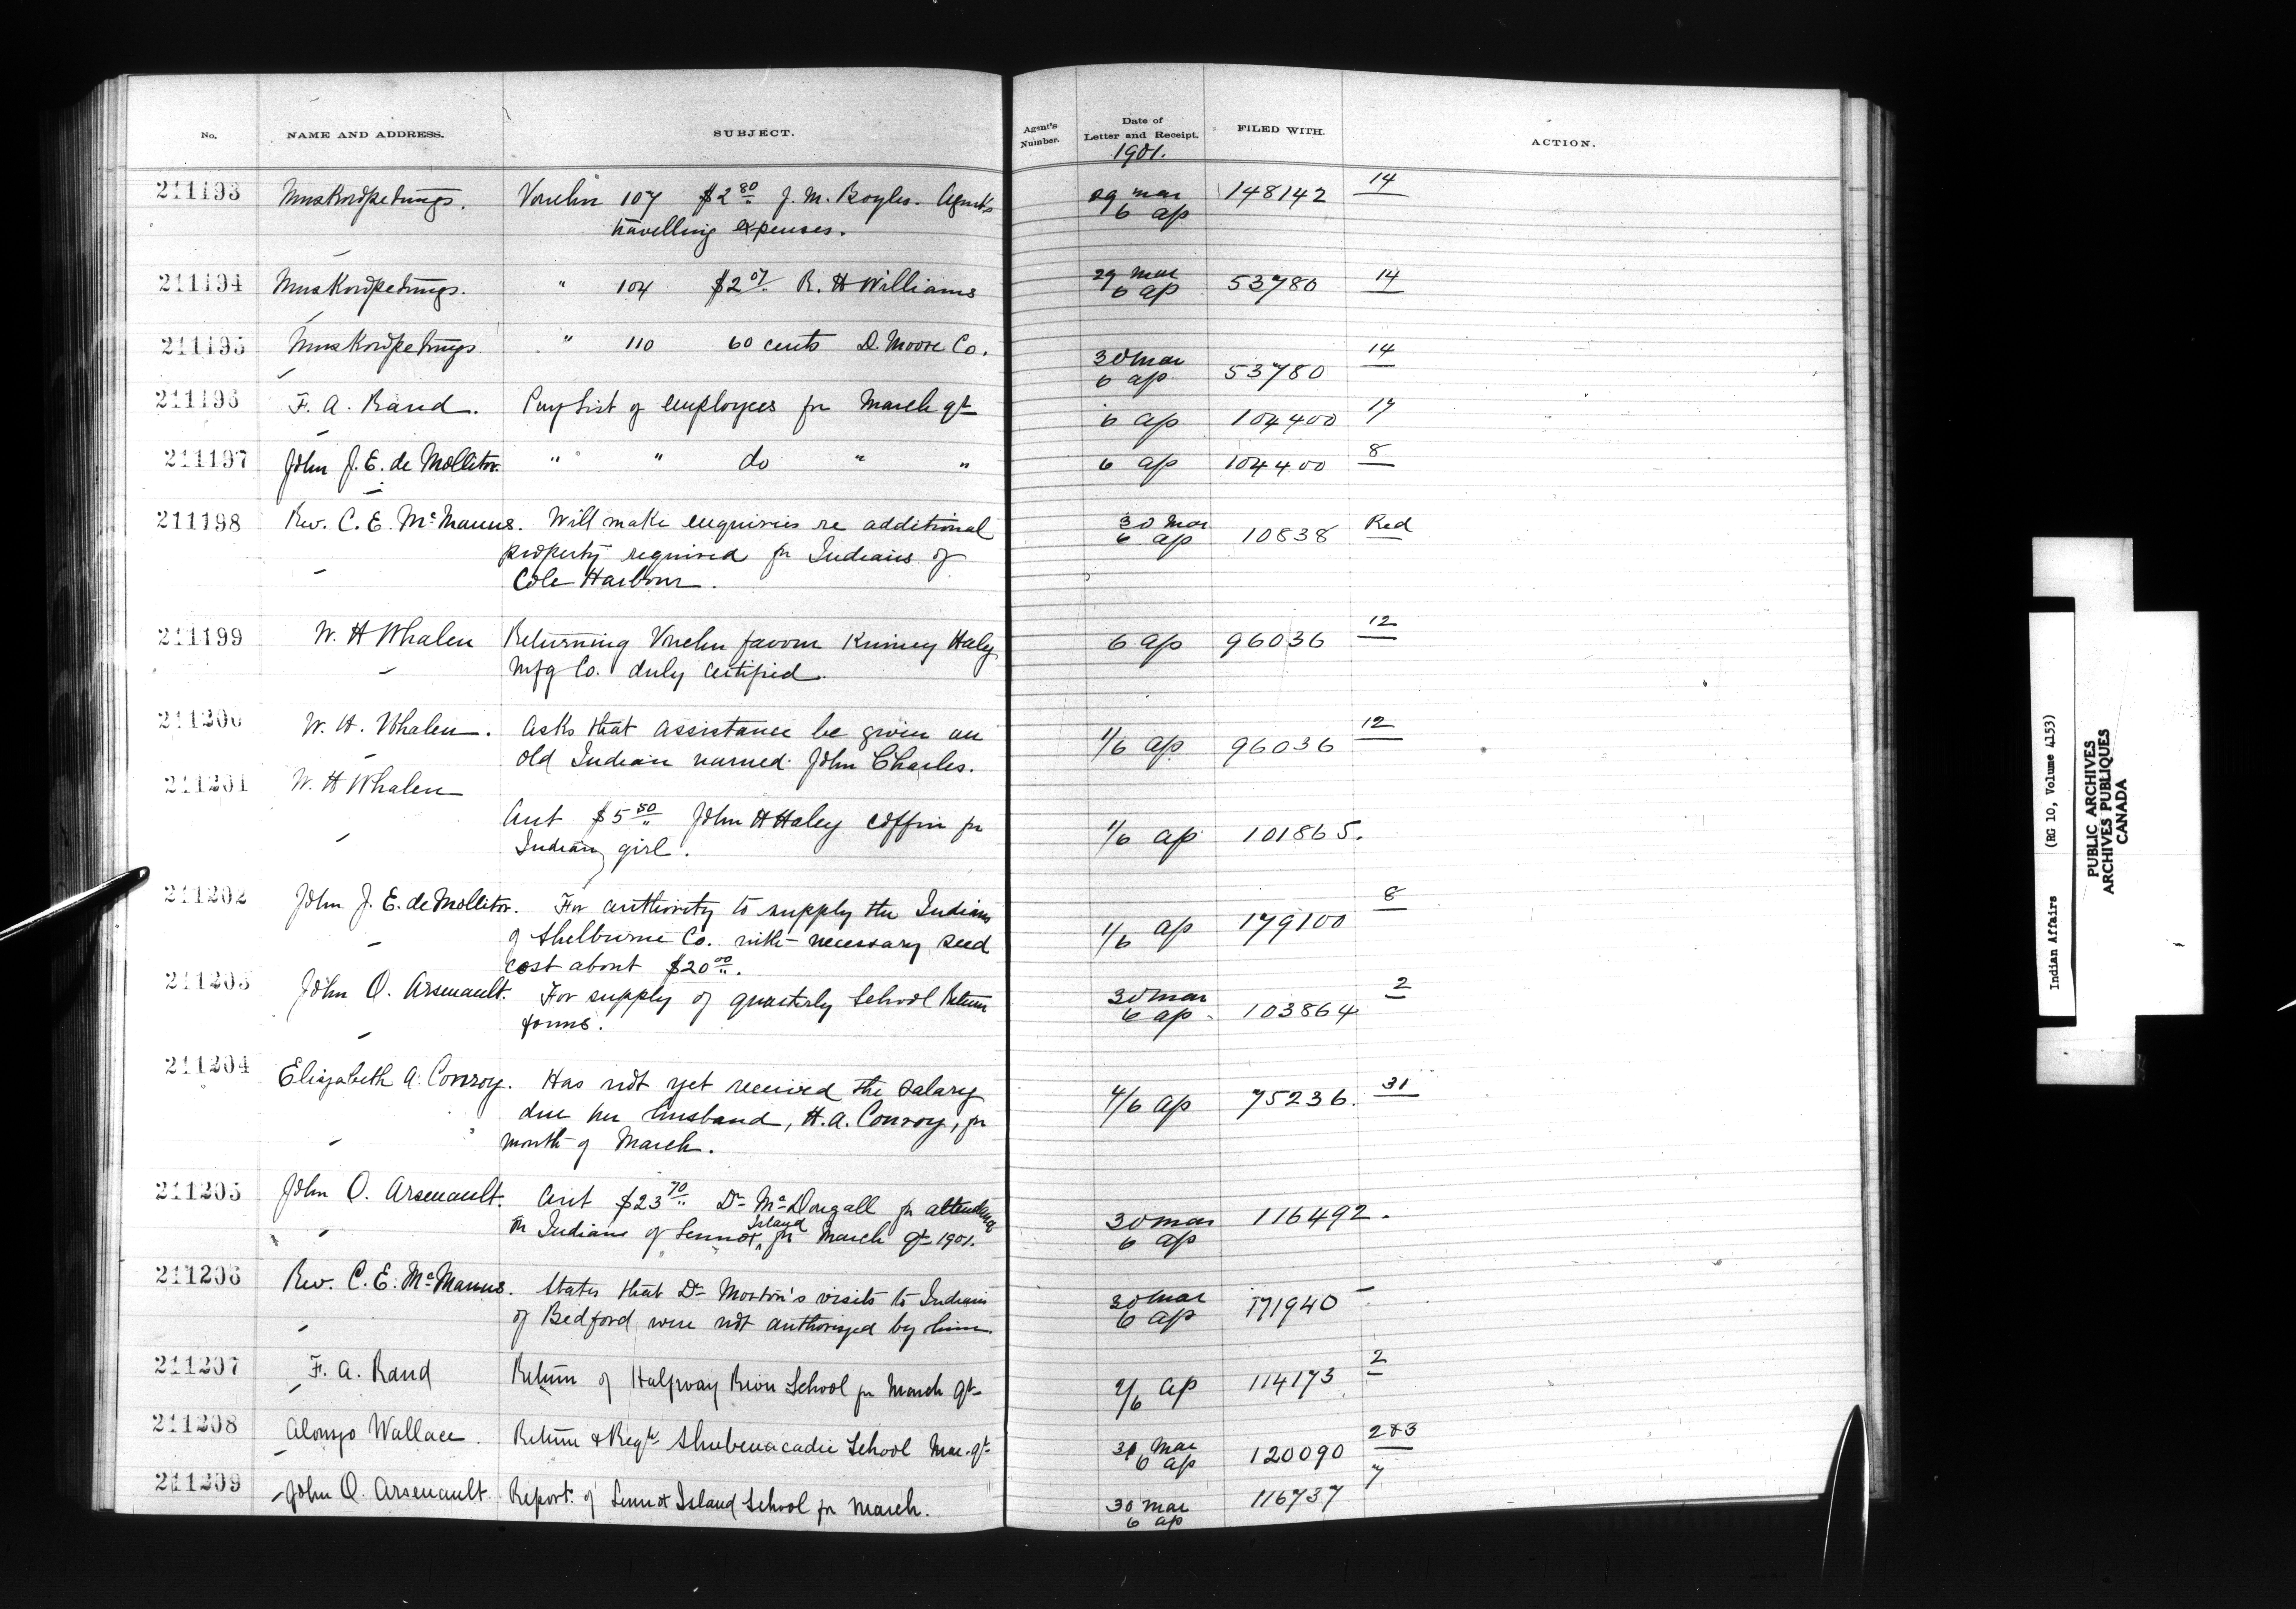 No. NAME AND ADDRESS. SUBJECT. Agent's Number. Date of Letter and Receipt. FILED WITH. ACTION.
1901.
211193 Muskowpetungs. Voucher 107 $2 80 J. M. Boyles. Agent's 29 Mar 148142 14
travelling expenses. 6 ap
211194 Muskowpetungs. " 104 $2 07 R. H Williams 29 Mar 53780 14
6 ap
211195 Muskowpetungs " 110 60 cents D. Moore Co. 30 Mar 53780 14
6 ap
211196 F. A. Rand. Pay list of employees for March qt 6 ap 104400 17
211197 John J. E. de Mollitor. " " do " " 6 ap 104400 8
211198 Rev. C. E. McManus. Will make enquiries re additional 30 Mar 10838 Red
property required for Indians of 6 ap
Cole Harbour.
211199 W. H Whalen Returning Voucher favour Kinney Haley 6 ap 96036 12
Mfg Co. duly certified.
211200 W. H. Whalen. Asks that assistance be given an 1/6 ap 96036 12
old Indian named John Charles.
211201 W. H Whalen
Acct $5 50 John H Haley coffin for 1/6 ap 101865.
Indian girl.
211202 John J. E. de Mollitor. For authority to supply the Indians 1/6 ap 179100 8
of Shelburne Co. with necessary seed
cost about $20 00.
211203 John O. Arsenault. For supply of quarterly School Return 30 Mar 103864 2
forms. 6 ap
211204 Elizabeth A. Conroy. Has not yet received the salary 4/6 ap 75236. 31
due her husband, H. A. Conroy, for
month of March.
211205 John O. Arsenault. Acct $23 70 Dr McDougall for attendance 30 Mar 116492.
on Indians of Lennox Island for March qt 1901. 6 ap
211206 Rev. C. E. McManus. States that Dr Morton's visits to Indians 30 Mar 171940 -
of Bedford were not authorized by him. 6 ap
211207 F. A. Rand Return of Halfway River School for March qt 2/6 ap 114173 2
211208 Alonzo Wallace. Return & Regr Shubenacadie School Mar. qt 30 Mar 120090 2&3
6 ap
211209 John O. Arsenault. Report of Lennox Island School for March. 30 Mar 116737 7
6 ap
Indian Affairs (RG 10, Volume 4153)
PUBLIC ARCHIVES
ARCHIVES PUBLIQUES
CANADA